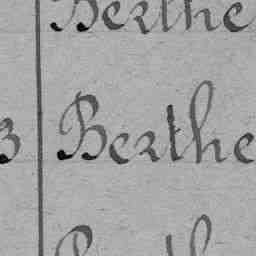 Berthe
3 Berthe